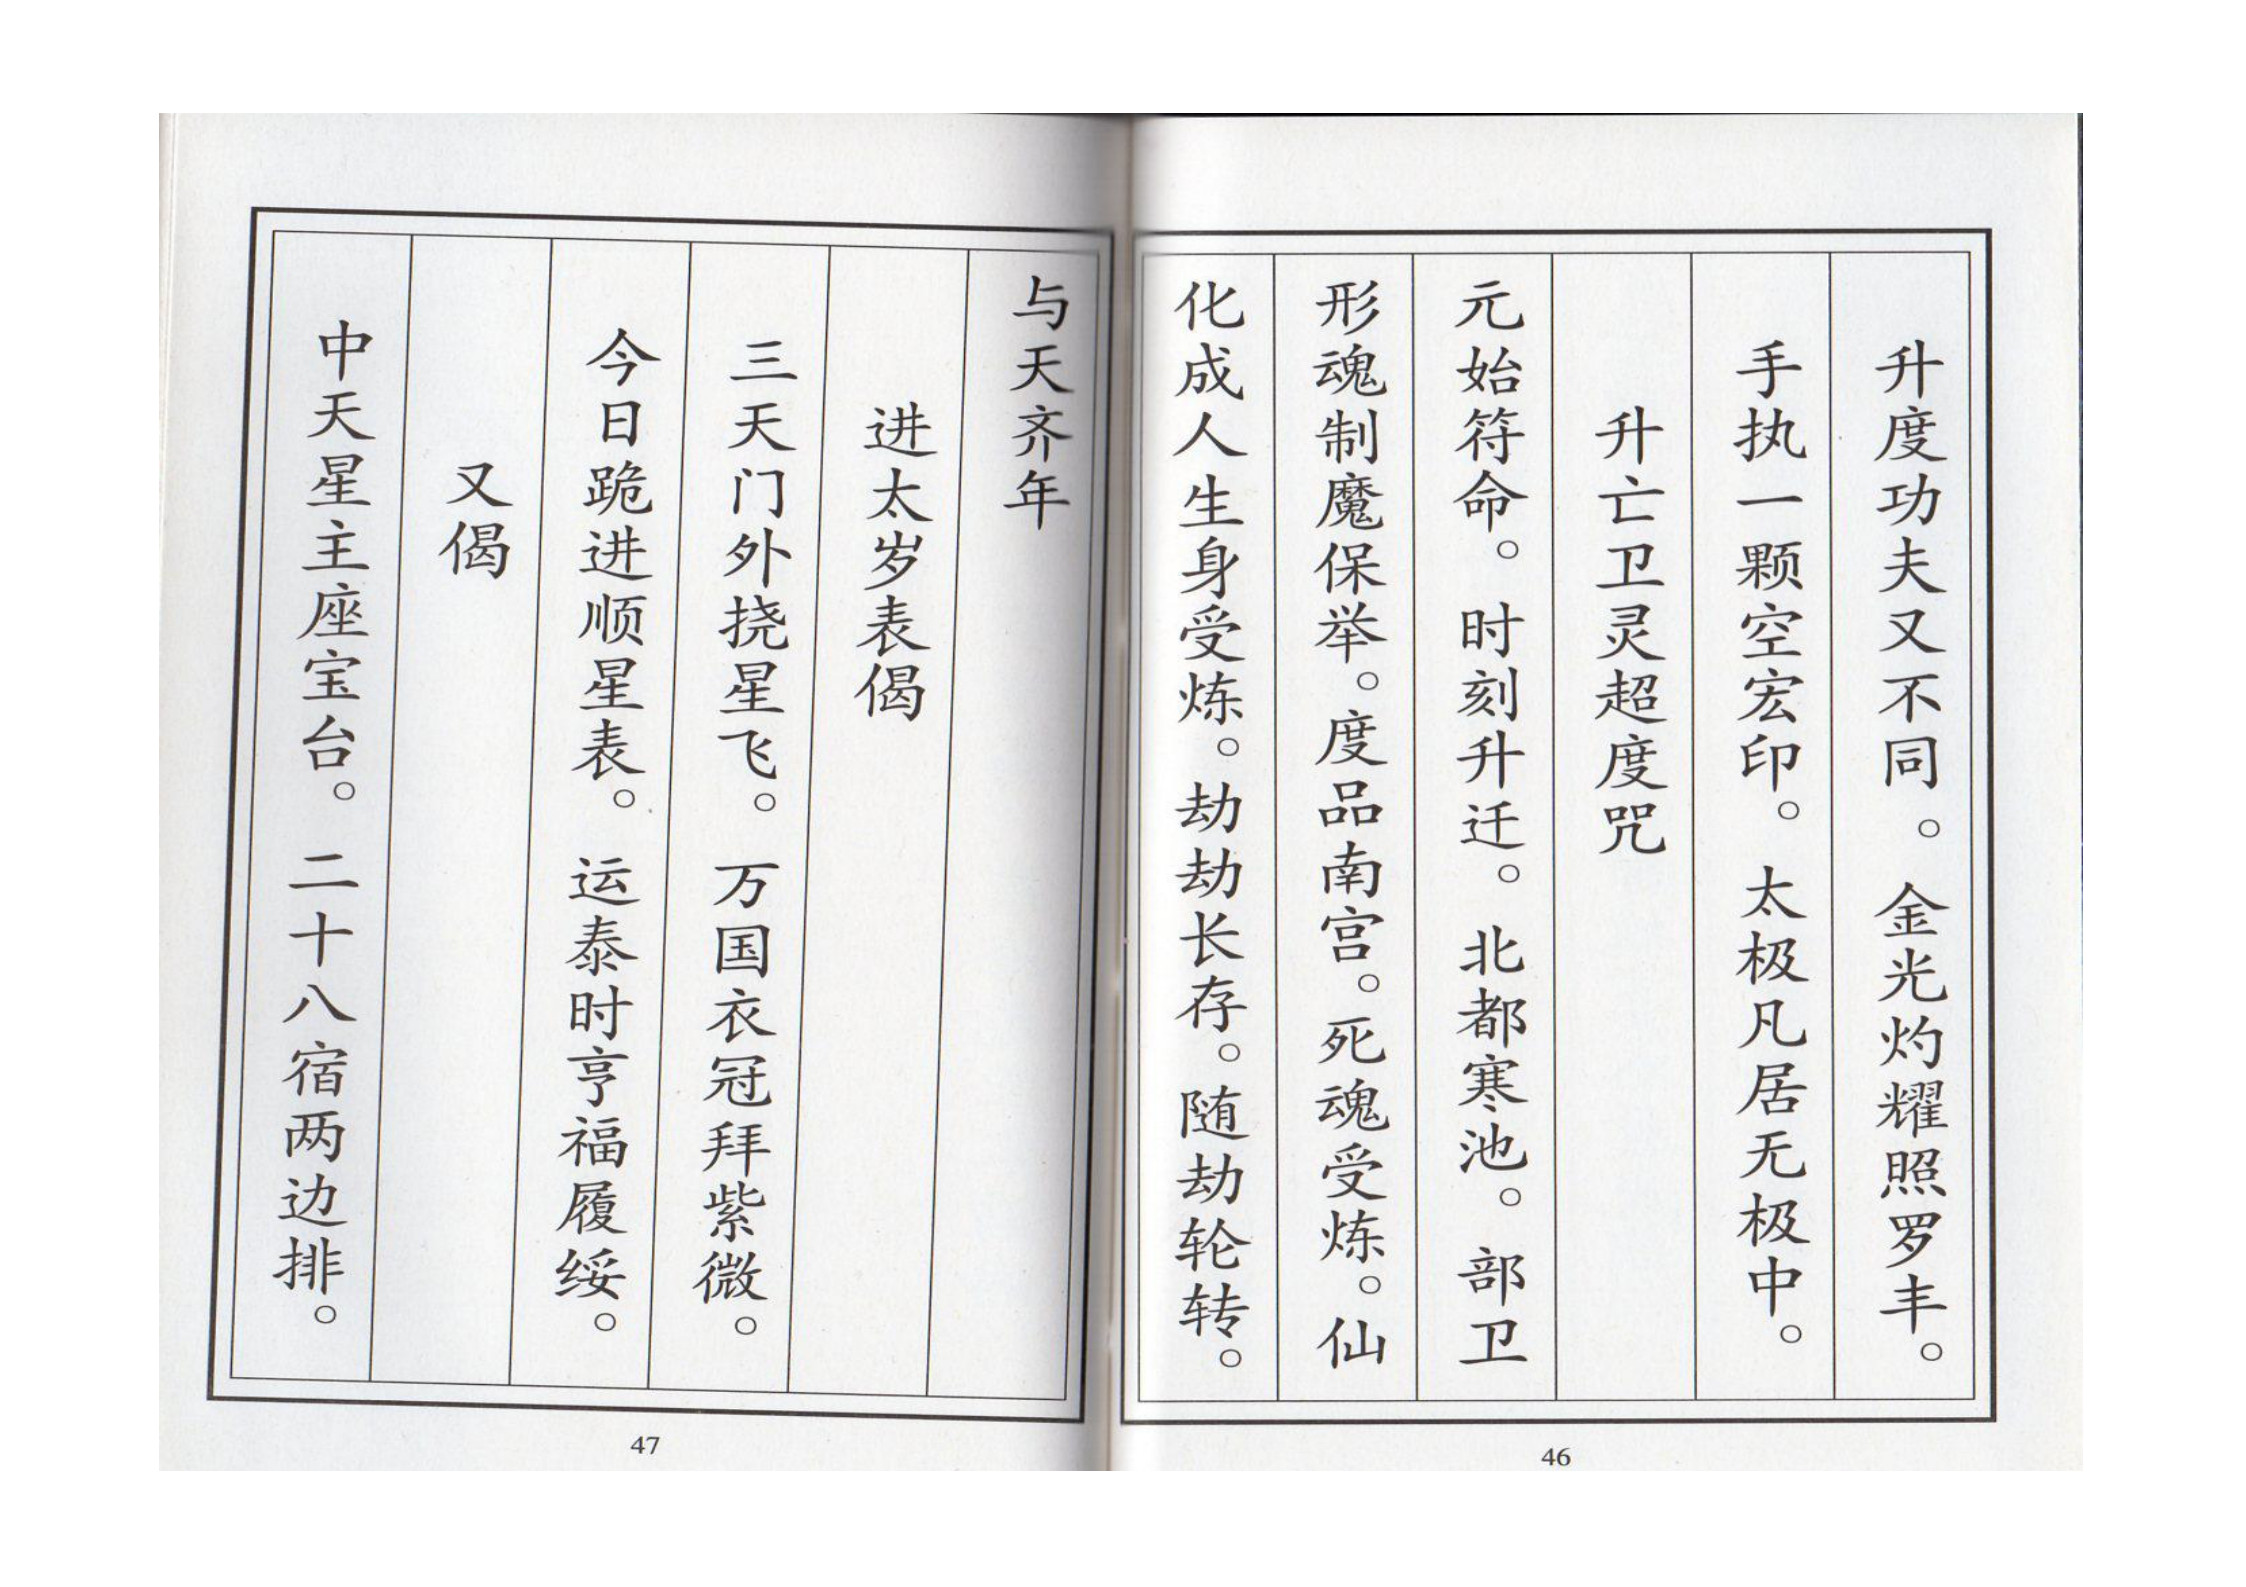 升度功夫又不同。金光灼耀照罗丰。
手执一颗空宏印。太极凡居无极中。
升亡卫灵超度咒
元始符命。时刻升迁。北都寒池。部卫
形魂制魔保举。度品南宫。死魂受炼。仙
化成人生身受炼。劫劫长存。随劫轮转。
46
与天齐年
进太岁表偈
三天门外挠星飞。万国衣冠拜紫微。
今日跪进顺星表。运泰时亨福履绥。
又偈
中天星主座宝台。二十八宿两边排。
47